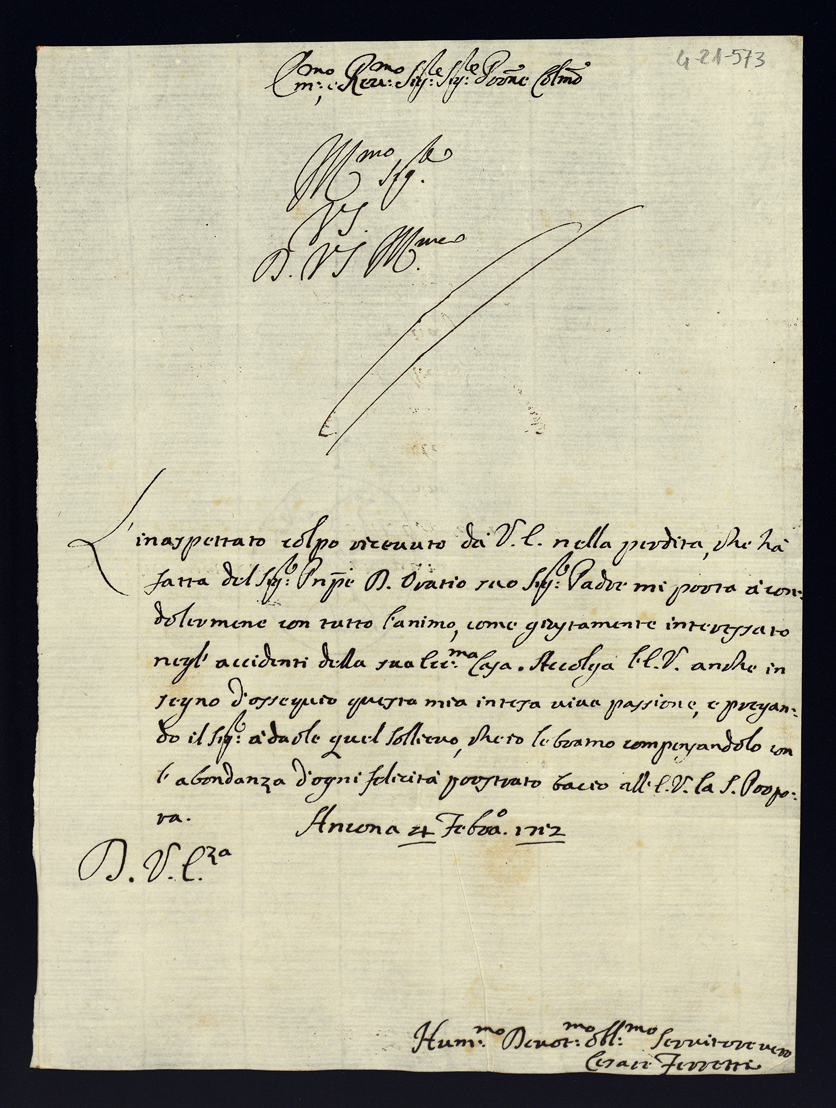 4-21-573
Em:mo e Rev:mo Sig:re Sig:re Prone Colmo
Mmo Sig.re
VS.
D. VS Mmes
L'inaspettato colpo ricevuto da V. E. nella perdita, che hà
fatta del Sig:re Pnpe D. Oratio suo Sig:re Padre mi porta à con-
dolermene con tutto l'animo, come giustamente interessato
negl' accidenti della sua Ecc:ma Casa. Accolga l'E.V. anche in
segno d'ossequio questa mia intesa viva passione, e pregan:
do il Sig:re à darle quel sollievo, che io le bramo compensandolo con
l'abondanza d'ogni felicità prostrato bacio all'E.V. la S. Porpo:
ra. Ancona 24 Febro. 1712
D. V. E.za
Hum:mo Devot:mo obl:mo Servitore vero
Cesare Ferretti